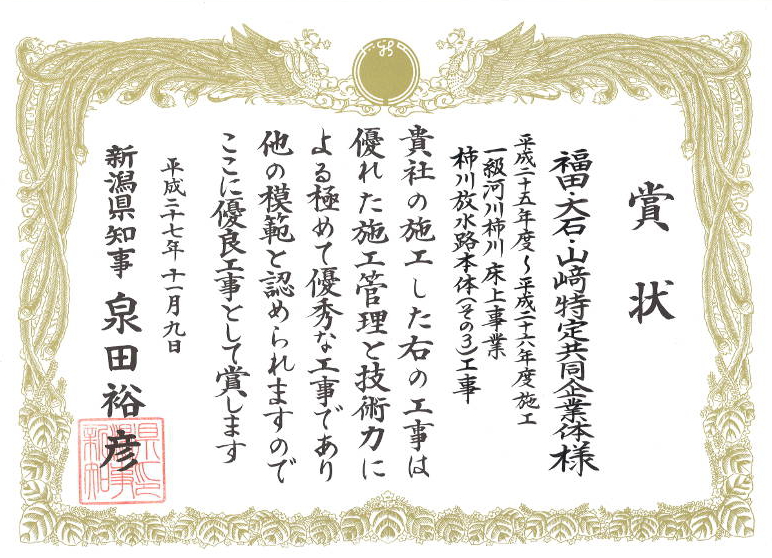 賞状
福田・大石・山﨑特定共同企業体様
平成二十五年度～平成二十六年度施工
一級河川柿川床上事業
柿川放水路本体(その3)工事
貴社の施工した右の工事は
優れた施工管理と技術力に
よる極めて優秀な工事であり
他の模範と認められますので
ここに優良工事として賞します
平成二十七年十一月九日
新潟県知事 泉田裕彦